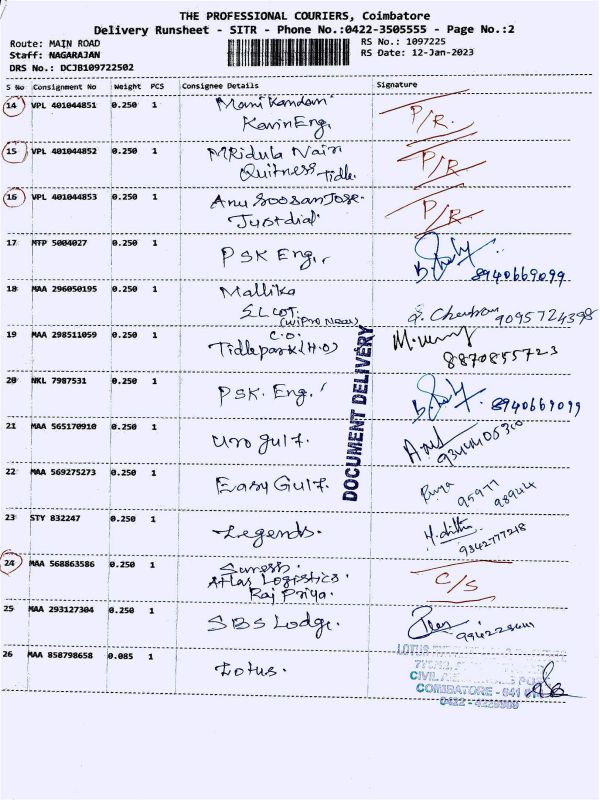 THE PROFESSIONAL COURIERS, Coimbatore
Delivery Runsheet - SITR - Phone No.:0422-3505555 - Page No.:2
Route: MAIN ROAD RS No.: 1097225
Staff: NAGARAJAN RS Date: 12-Jan-2023
DRS No.: DCJB109722502
S No Consignment No Weight PCS Consignee Details Signature
14 VPL 401044851 0.250 1 Manikandan P/R.
Kavin Eng,
15 VPL 401044852 0.250 1 MRidula Nair P/R.
Quitness Tidle.
16 VPL 401044853 0.250 1 Anu Soosan Jose. P/R
Justdial.
17 MTP 5004027 0.250 1 PSK Eng,. 8940669099
18 MAA 296050195 0.250 1 Mallika
ELCOT 9095724398
(Wipro Near)
19 MAA 298511059 0.250 1 C.O.
Tidlepark (H.O) 8870855723
20 NKL 7987531 0.250 1 PSK. Eng. 8940669099
21 MAA 565170910 0.250 1 uro gulf.
22 MAA 569275273 0.250 1 Easy Gulf.
23 STY 832247 0.250 1 Legends. 9342777218
24 MAA 568863586 0.250 1 Suresh. C/S
Atlas Logistics.
Raj Priya.
25 MAA 293127304 0.250 1 SBS Lodge.
26 MAA 858798658 0.085 1 Lotus.
DOCUMENT DELIVERY
COIMBATORE - 641